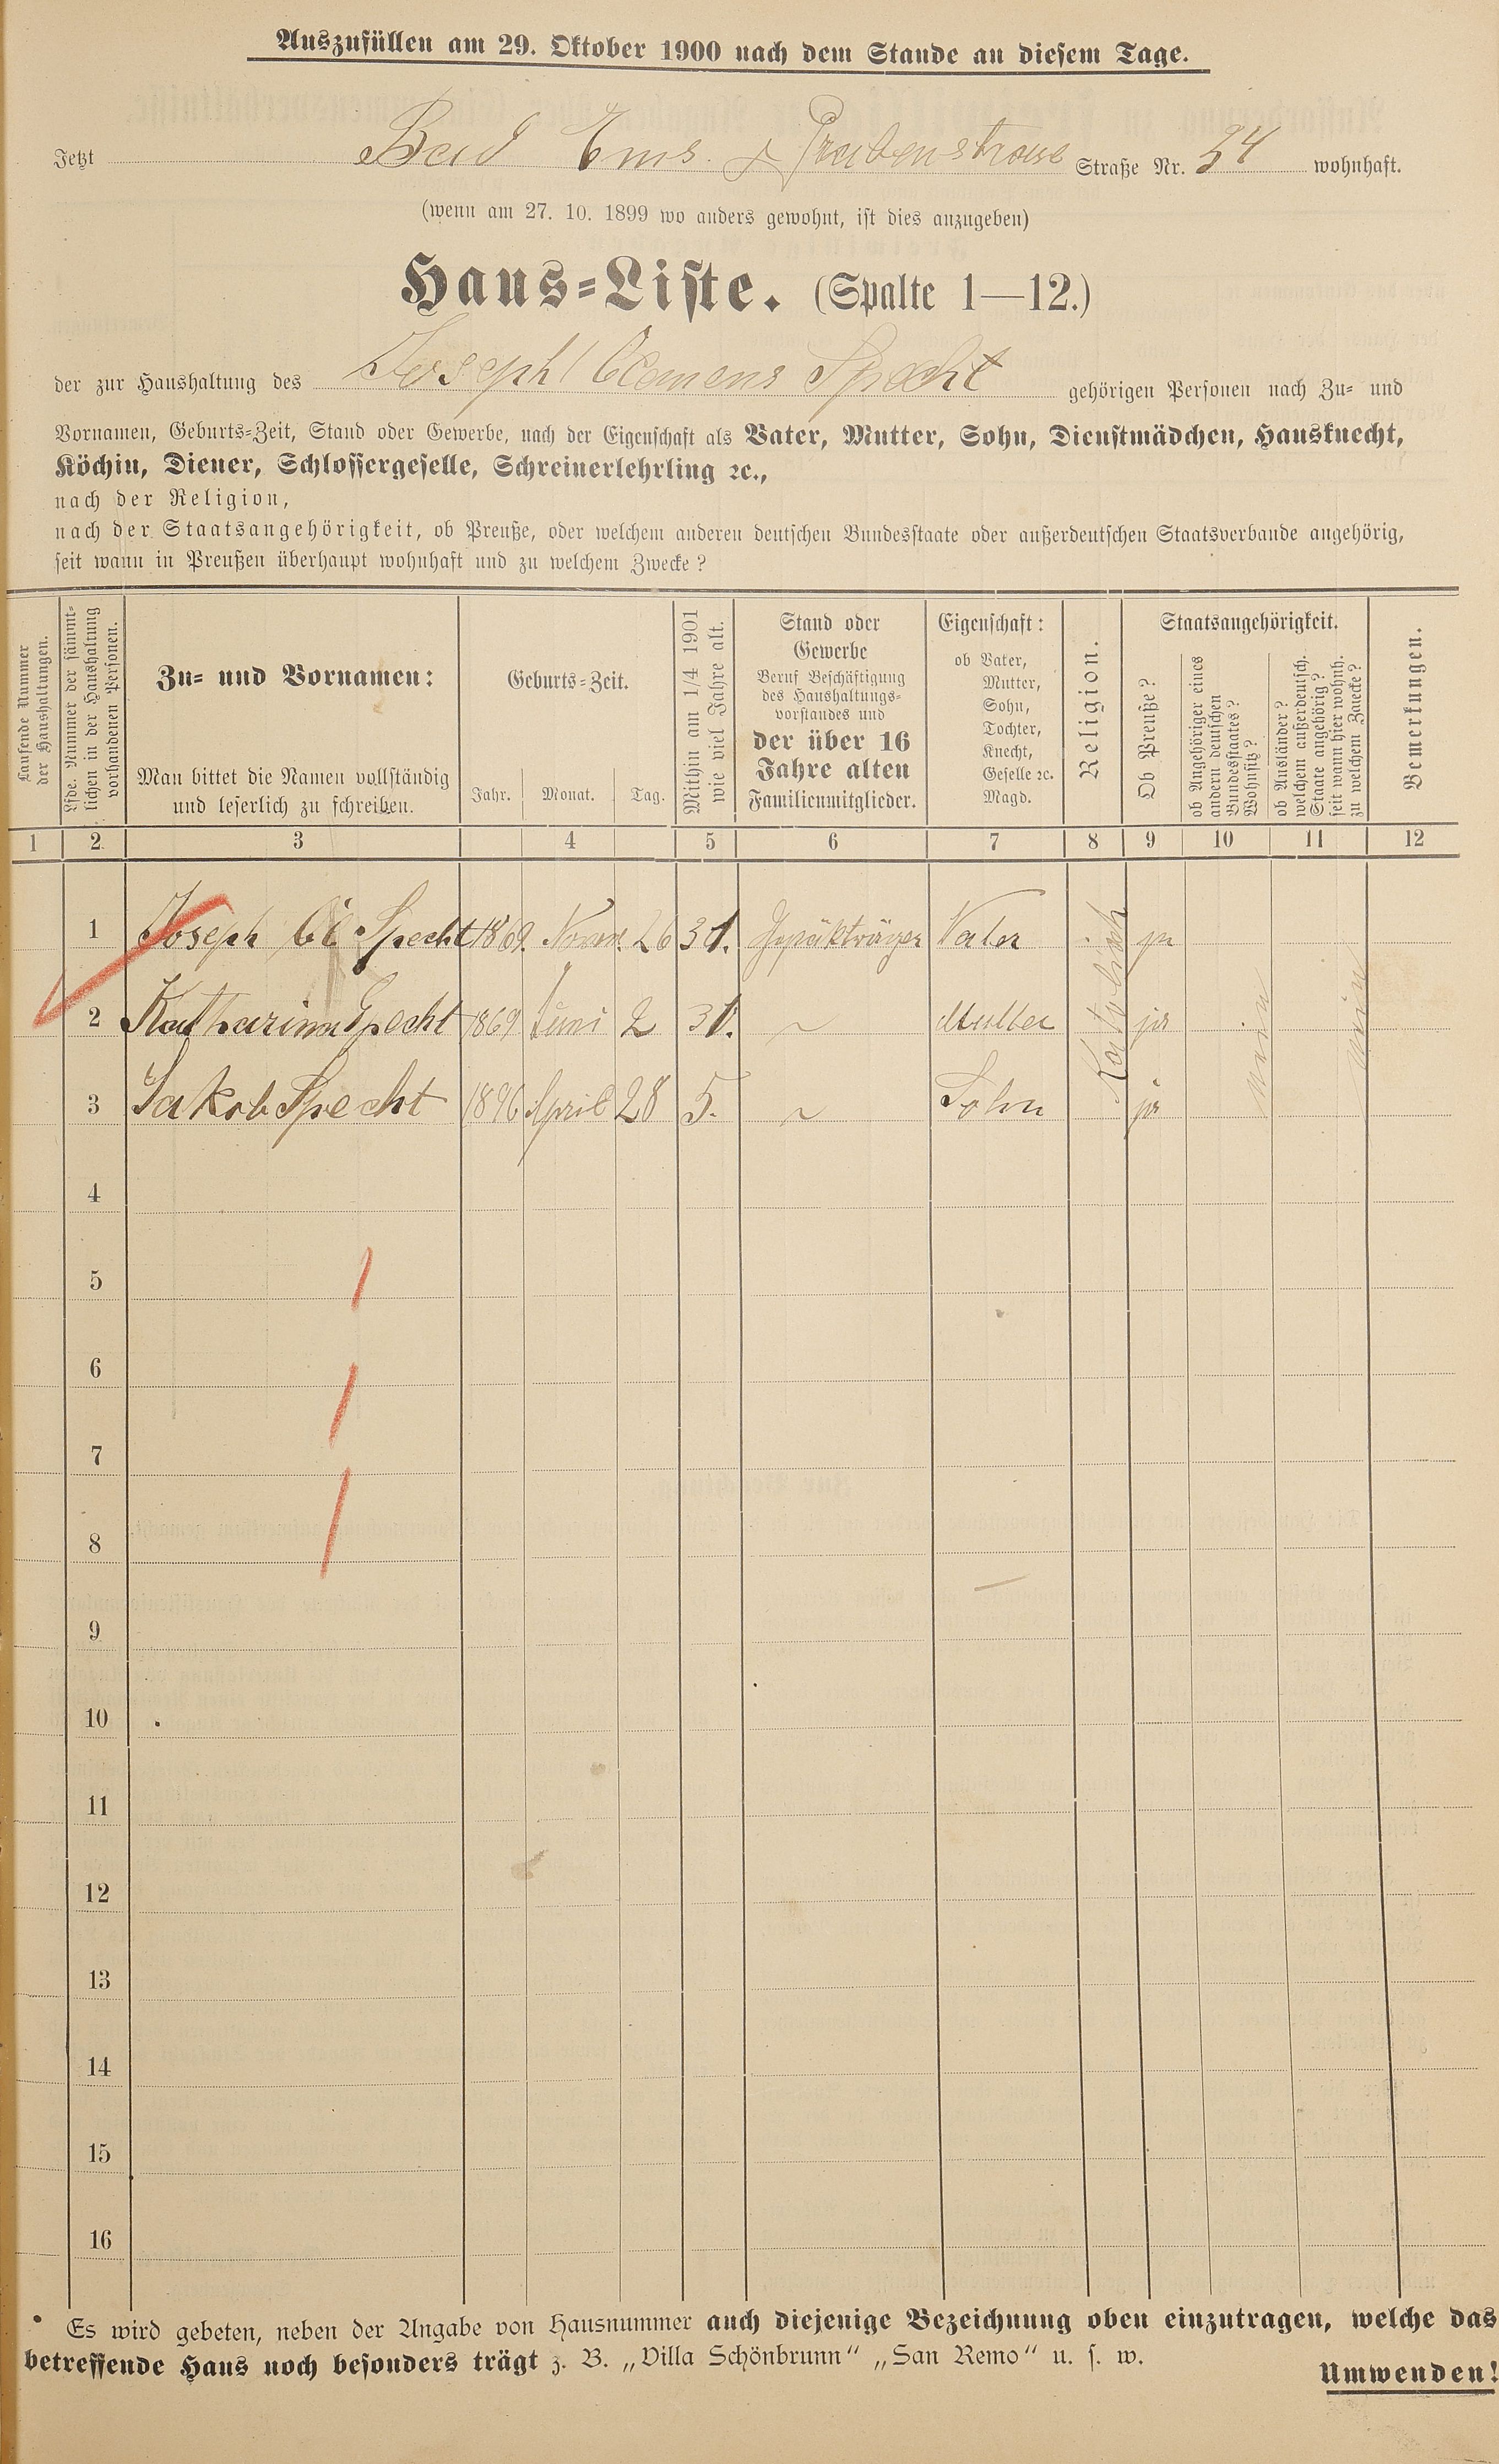 Auszufüllen am 29. Oktober 1900 nach dem Stande an diesem Tage.
Jetzt Bad Ems. Grabenstrasse Straße Nr. 34 wohnhaft.
(wenn am 27. 10. 1899 wo anders gewohnt, ist dies anzugeben)
Haus=Liste. (Spalte 1—12.)
der zur Haushaltung des Joseph Clemens Specht gehörigen Personen nach Zu= und
Vornamen, Geburts=Zeit, Stand oder Gewerbe, nach der Eigenschaft als Vater, Mutter, Sohn, Dienstmädchen, Hausknecht,
Köchin, Diener, Schlossergeselle, Schreinerlehrling ꝛc.,
nach der Religion,
nach der Staatsangehörigkeit, ob Preuße, oder welchem anderen deutschen Bundesstaate oder außerdeutschen Staatsverbande angehörig,
seit wann in Preußen überhaupt wohnhaft und zu welchem Zwecke?
Laufende Nummer
der Haushaltungen.
Lfde. Nummer der sämmt=
lichen in der Haushaltung
vorhandenen Personen.
Zu= und Vornamen:
Man bittet die Namen vollständig
und leserlich zu schreiben.
Geburts=Zeit.
Jahr. Monat. Tag.
Mithin am 1/4 1901
wie viel Jahre alt.
Stand oder
Gewerbe
Beruf Beschäftigung
des Haushaltungs=
vorstandes und
der über 16
Jahre alten
Familienmitglieder.
Eigenschaft:
ob Vater,
Mutter,
Sohn,
Tochter,
Knecht,
Geselle ꝛc.
Magd.
Religion.
Staatsangehörigkeit.
Ob Preuße?
ob Angehöriger eines
andern deutschen
Bundesstaates?
Wohnsitz?
ob Ausländer?
welchem außerdeutsch.
Staate angehörig?
seit wann hier wohnh.
zu welchem Zwecke?
Bemerkungen.
1 2 3 4 5 6 7 8 9 10 11 12
1 Joseph Cl Specht 1869. Novem. 26 31. Gepäkträger Vater ja
2 Katharina Specht 1869 Juni 2 31. ~ Mutter ja
3 Jakob Specht 1896 April 28 5. ~ Sohn ja
Katholisch
nein
nein
4
5
6
7
8
9
10
11
12
13
14
15
16
Es wird gebeten, neben der Angabe von Hausnummer auch diejenige Bezeichnung oben einzutragen, welche das
betreffende Haus noch besonders trägt z. B. „Villa Schönbrunn“ „San Remo“ u. s. w.
Umwenden!